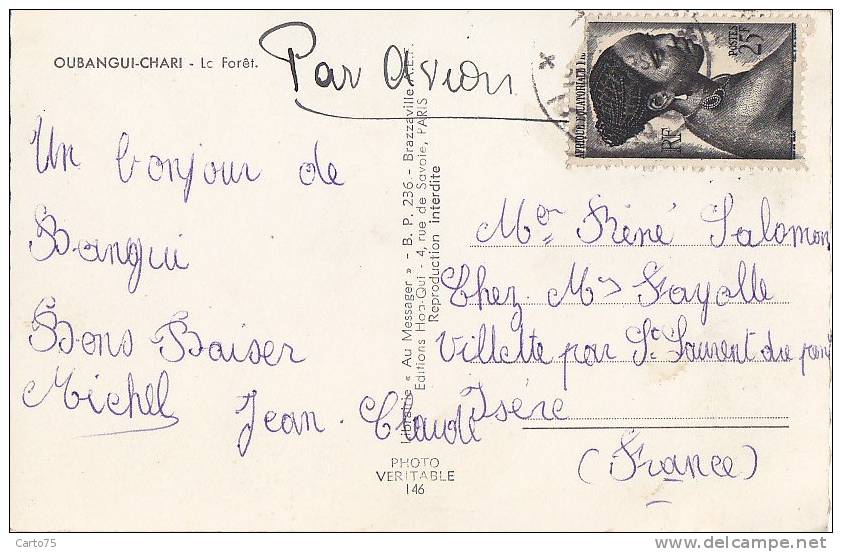 OUBANGUI-CHARI - Lc Forêt.
Par Avion
Un bonjour de
Bangui
Bons Baiser
Michel
Jean-Claude
Librairie « Au Messager » - B. P. 236 - Brazzaville A.E.F.
Editions Hoa-Qui - 4, rue de Savoie, PARIS
Reproduction interdite
PHOTO
VERITABLE
146
AFRIQUE EQUATORIALE
RF
POSTES 25F
Mer Réné Salomon
Chez Mrs Fayolle
Villette par St Laurent du pont
Isère
(France)
Carto75
www.delcampe.net